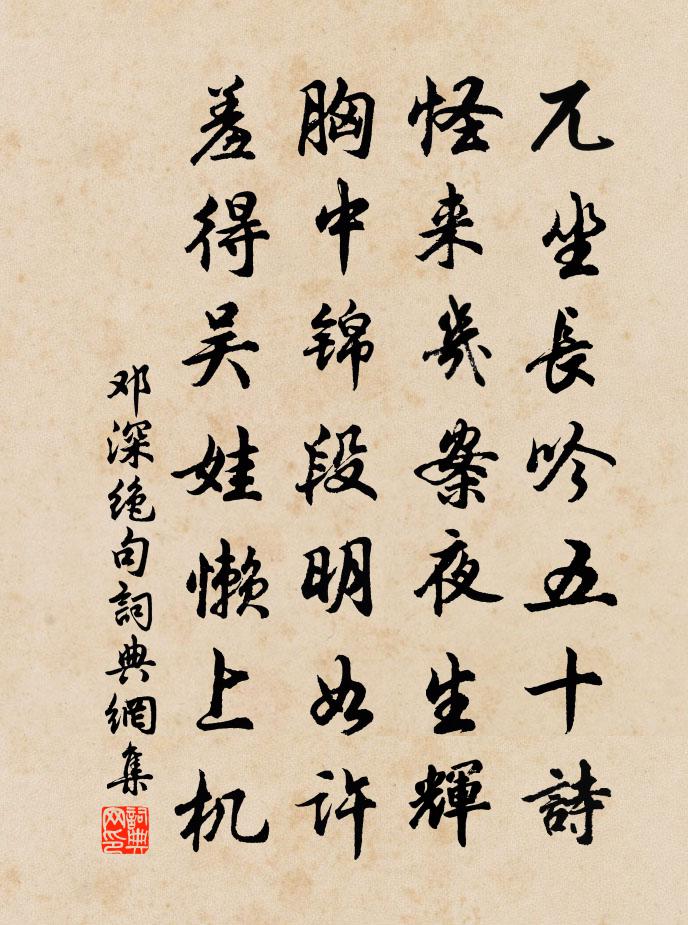 兀坐長吟五十詩
怪来幾案夜生輝
胸中锦段明如许
羞得吴娃懒上机
邓深绝句詞典網集
詞典网印